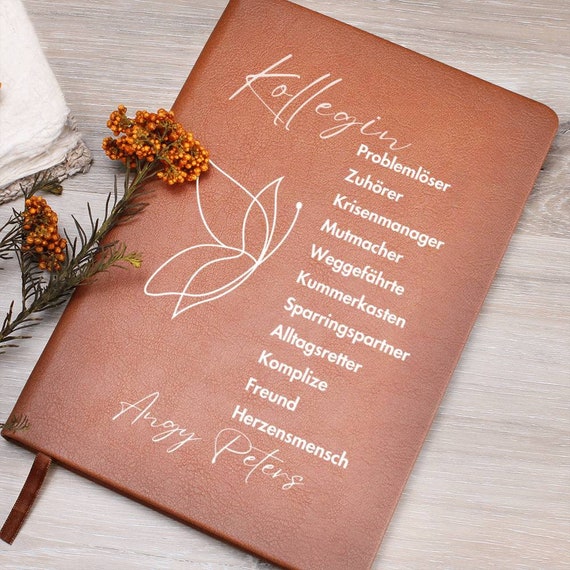 Kollegin
Problemlöser
Zuhörer
Krisenmanager
Mutmacher
Weggefährte
Kummerkasten
Sparringspartner
Alltagsretter
Komplize
Freund
Herzensmensch
Angy Peters